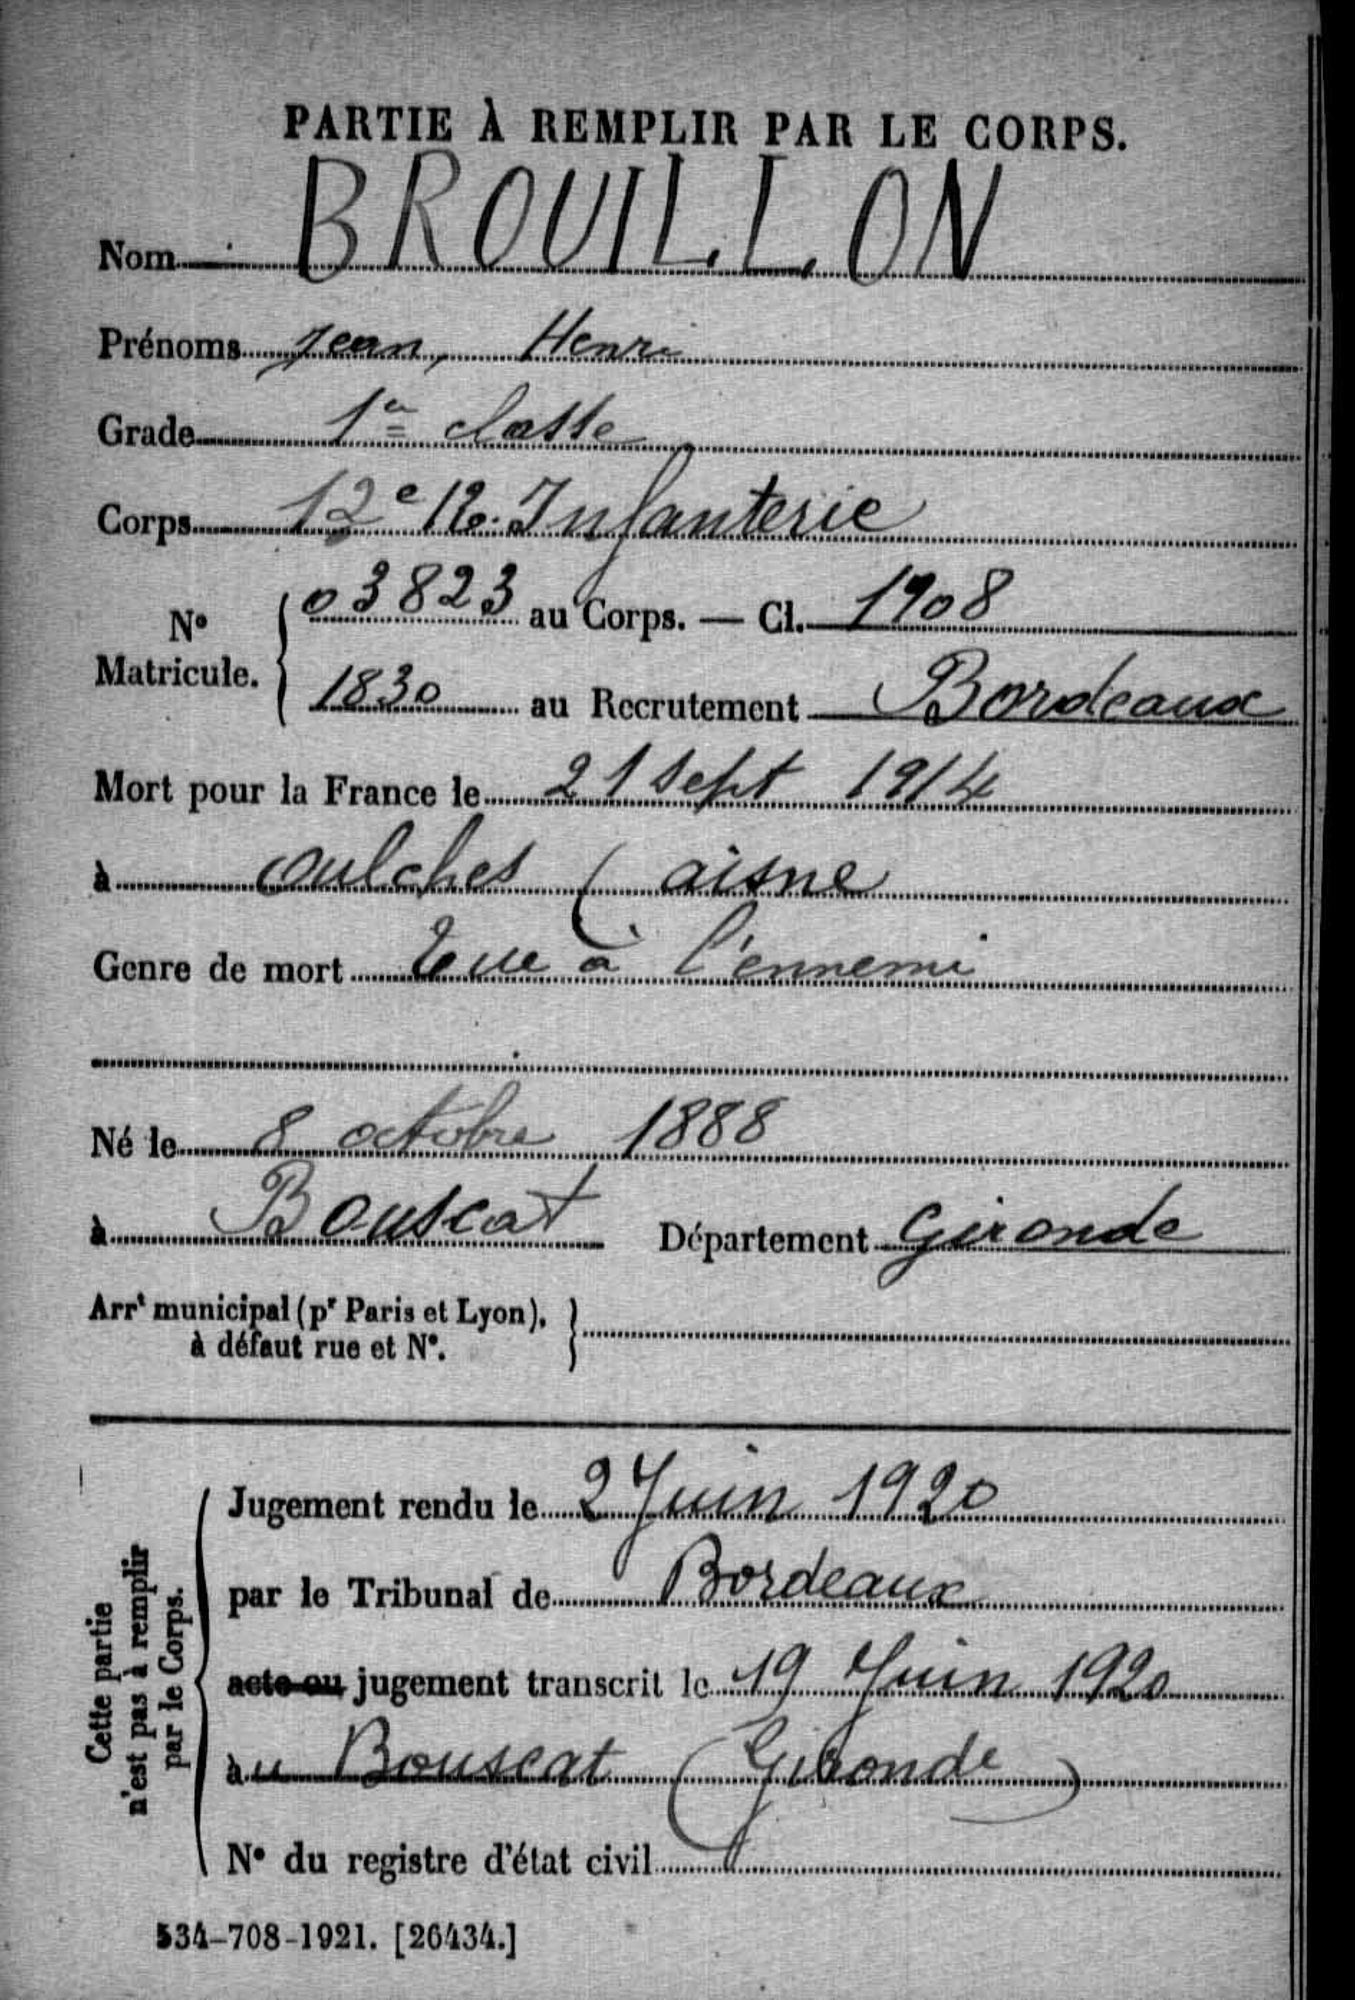 PARTIE À REMPLIR PAR LE CORPS.
Nom BROUILLON
Prénoms Jean, Henri
Grade 1re classe
Corps 12e Ré. Infanterie
No Matricule. 03823 au Corps. — Cl. 1908
1830 au Recrutement Bordeaux
Mort pour la France le 21 sept 1914
à Oulches (aisne
Genre de mort Tué à l'ennemi
Né le 8 octobre 1888
à Bouscat Département Gironde
Arrt municipal (pr Paris et Lyon),
à défaut rue et No.
Cette partie
n'est pas à remplir
par le Corps.
Jugement rendu le 2 Juin 1920
par le Tribunal de Bordeaux
acte ou jugement transcrit le 19 Juin 1920
au Bouscat (Gironde)
No du registre d'état civil
534-708-1921. [26434.]